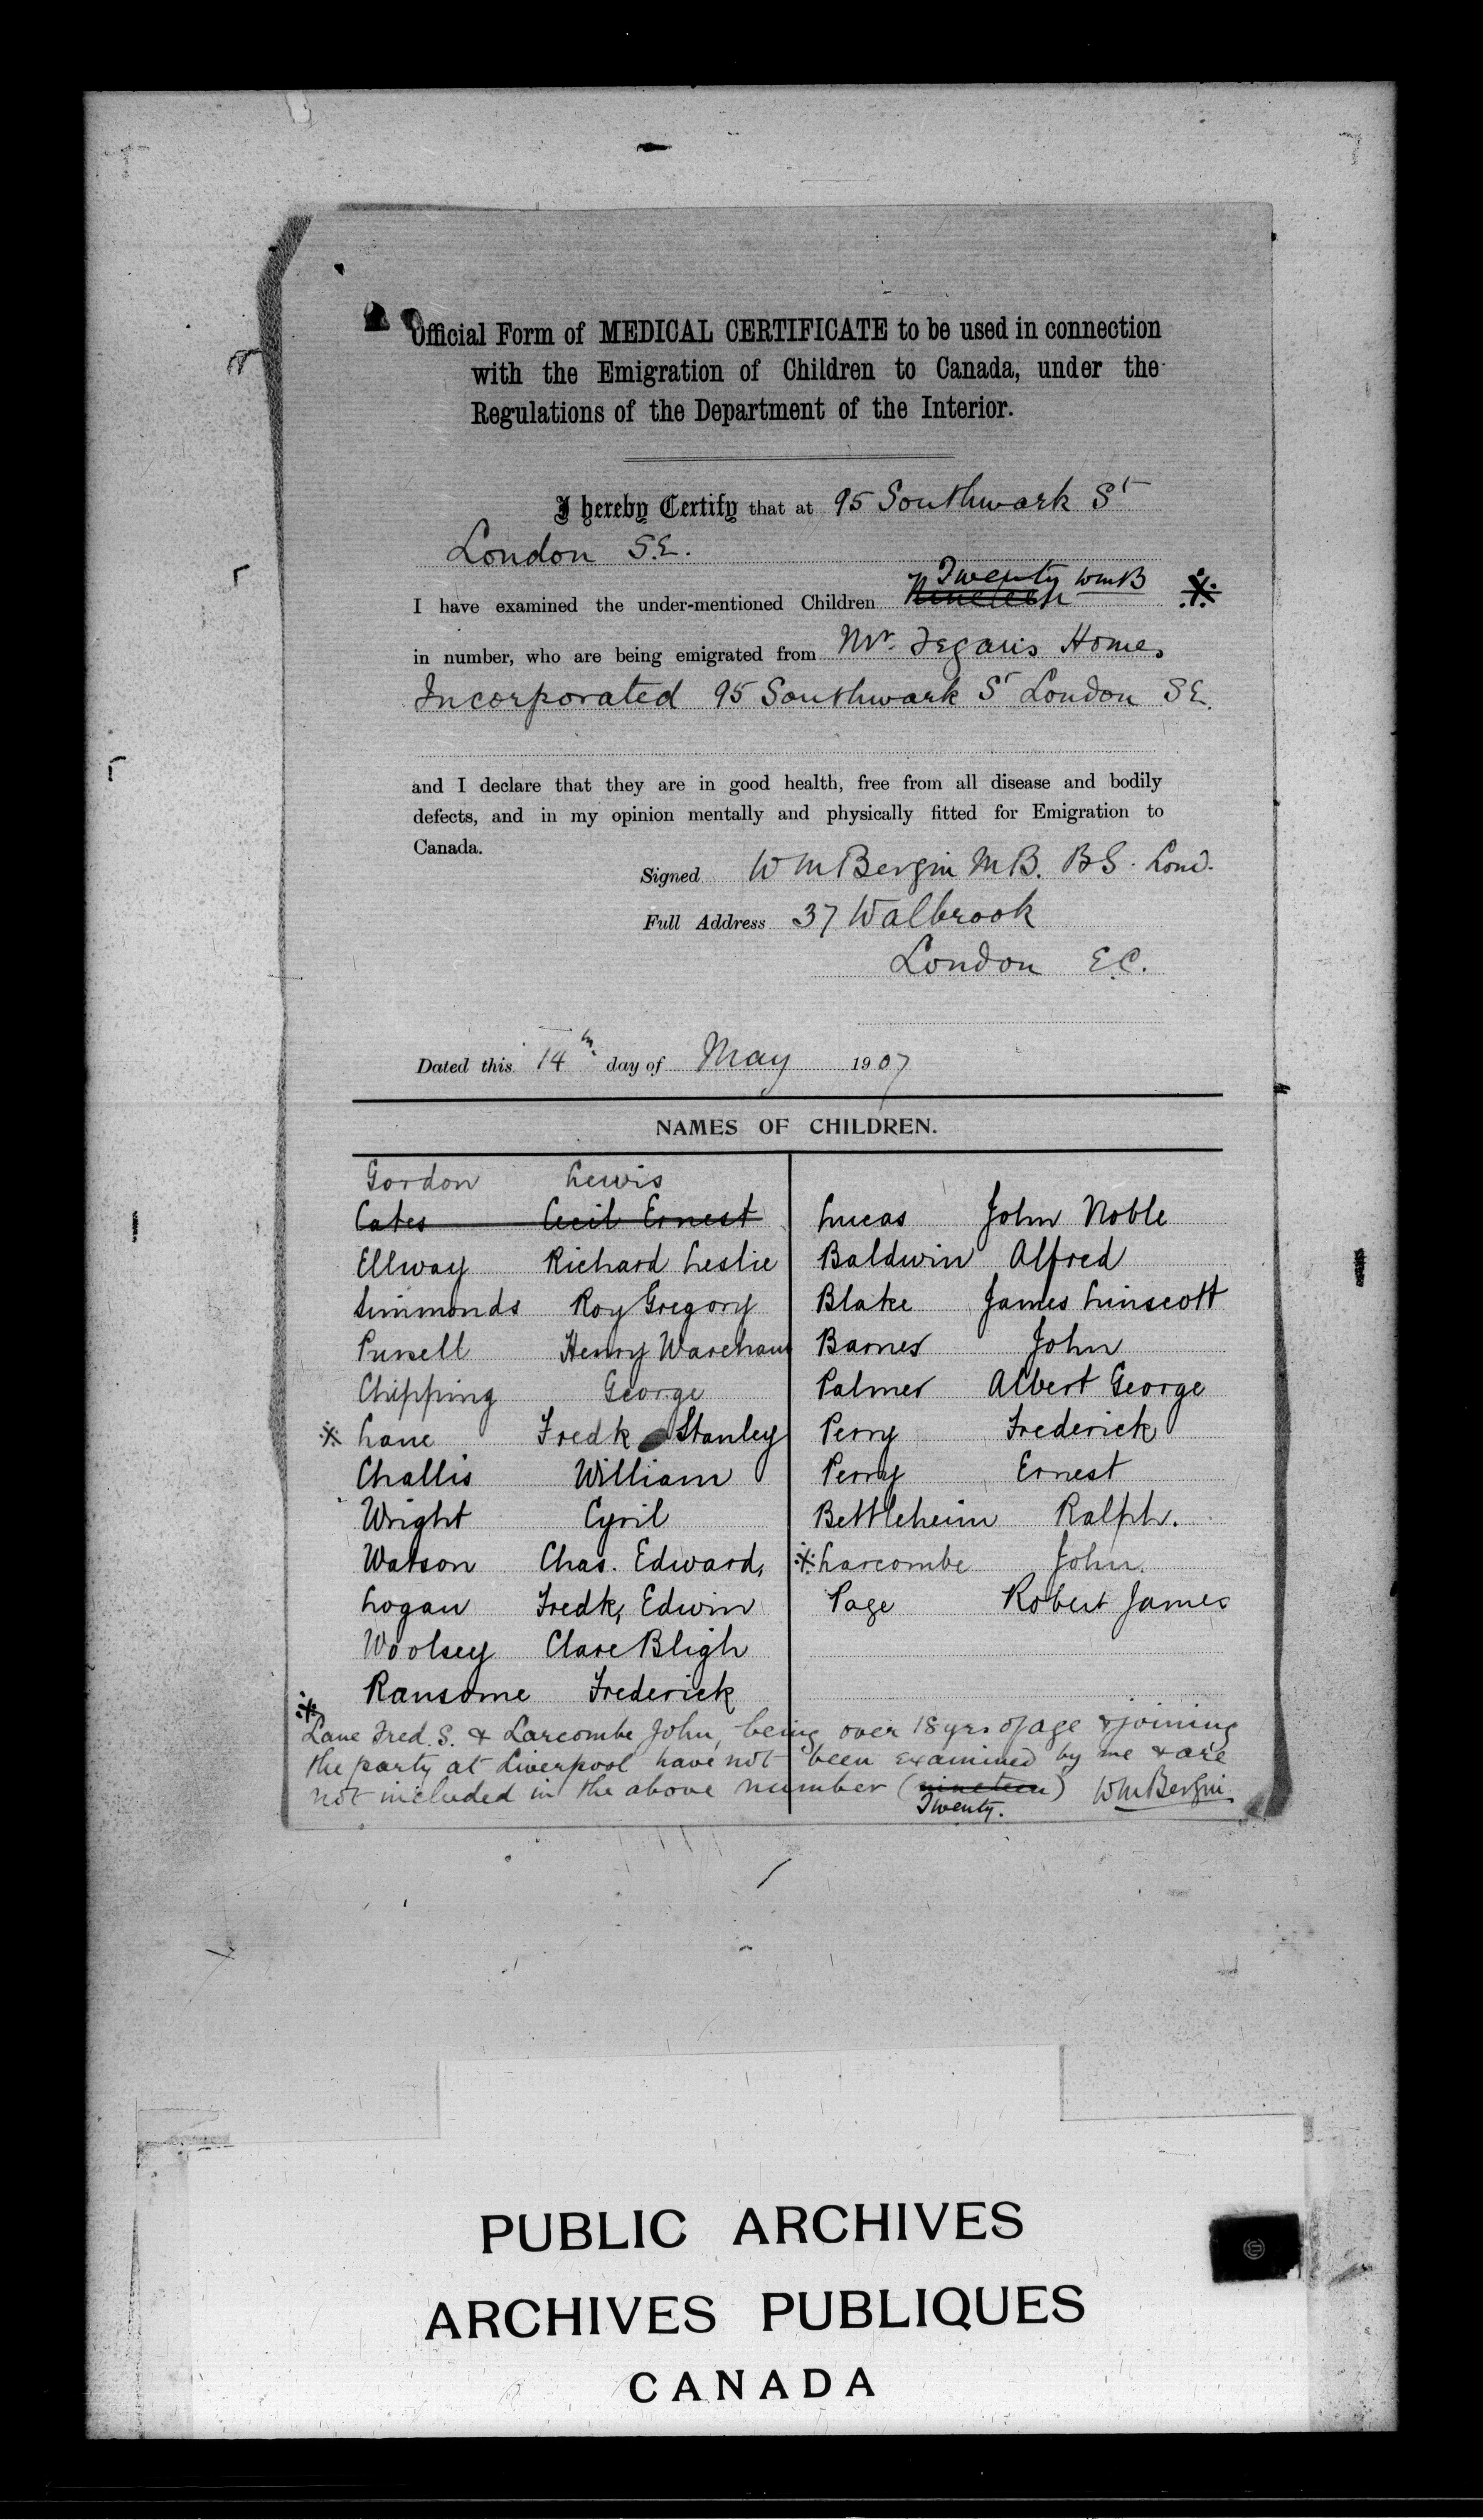 Official Form of MEDICAL CERTIFICATE to be used in connection
with the Emigration of Children to Canada, under the
Regulations of the Department of the Interior.
I hereby Certify that at 95 Southwark St
London S.E.
Twenty WmB
I have examined the under-mentioned Children Nineteen ※
in number, who are being emigrated from Mr. Fegan's Homes
Incorporated 95 Southwark St London S E.
and I declare that they are in good health, free from all disease and bodily
defects, and in my opinion mentally and physically fitted for Emigration to
Canada.
Signed Wm Bergin MB. BS. Lond.
Full Address 37 Walbrook
London E.C.
Dated this 14th day of May 1907
NAMES OF CHILDREN.
Gordon Lewis
Cates Cecil Ernest
Ellway Richard Leslie
Simmonds Roy Gregory
Pursell Henry Wareham
Chipping George
※ Lane Fredk Stanley
Challis William
Wright Cyril
Watson Chas. Edward,
Logan Fredk, Edwin
Woolsey Clare Bligh
Ransome Frederick
Lucas John Noble
Baldwin Alfred
Blake James Linscott
Barnes John
Palmer Albert George
Perry Frederick
Perry Ernest
Bettleheim Ralph.
※ Larcombe John.
Page Robert James
※
Lane Fred. S. & Larcombe John, being over 18 yrs of age & joining
the party at Liverpool have not been examined by me & are
not included in the above number (nineteen) Wm Bergin
Twenty.
PUBLIC ARCHIVES
ARCHIVES PUBLIQUES
CANADA